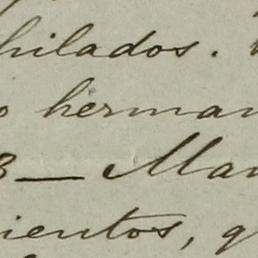 hilados.
herman
3 — Man
ientos, q